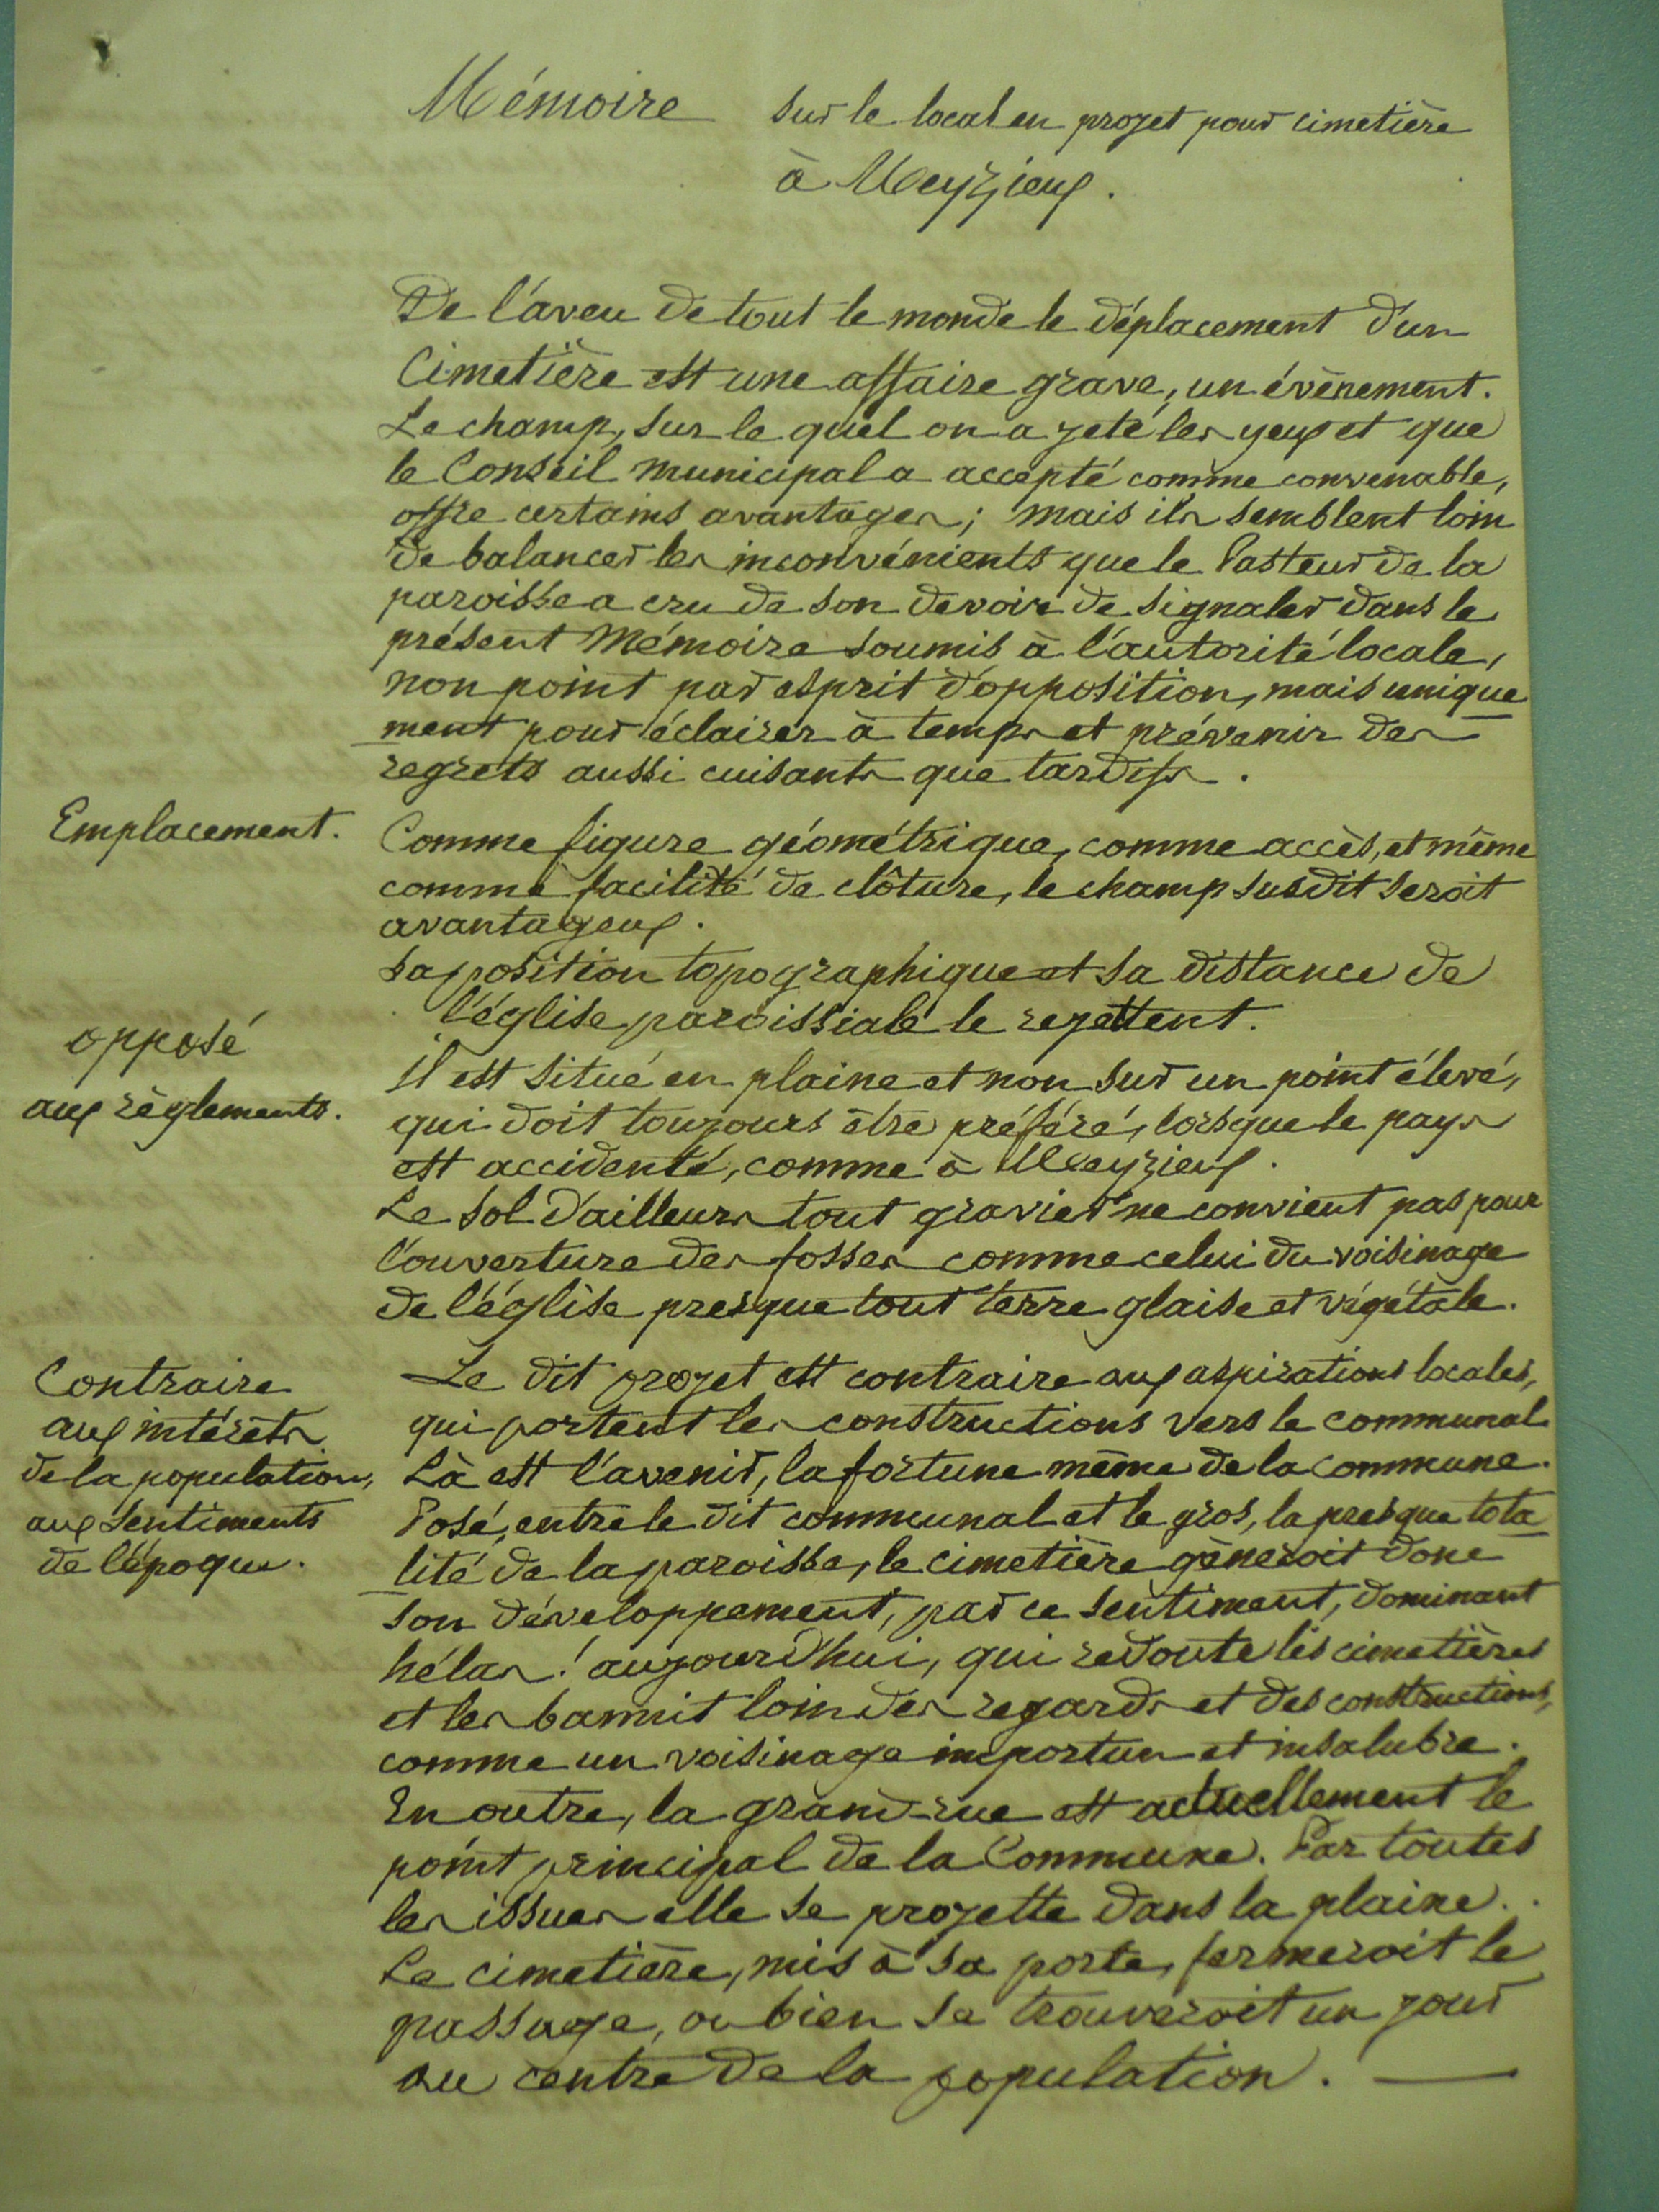 Mémoire sur le local en projet pour cimetière
à Meyzieux.
De l'aveu de tout le monde le déplacement d'un
Cimetière est une affaire grave, un évènement.
Le champ, sur le quel on a jeté les yeux et que
le Conseil municipal a accepté comme convenable,
offre certains avantages; mais ils semblent loin
de balancer les inconvénients que le Pasteur de la
paroisse a cru de son devoir de signaler dans le
présent Mémoire soumis à l'autorité locale,
non point par esprit d'opposition, mais unique
ment pour éclairer à temps et prévenir des
regrets aussi cuisants que tardifs.
Emplacement.
Comme figure géométrique, comme accès, et même
comme facilité de clôture, le champ susdit seroit
avantageux.
Sa position topographique et sa distance de
l'église paroissiale le rejettent.
opposé
aux règlements.
Il est situé en plaine et non sur un point élevé,
qui doit toujours être préféré, lorsque le pays
est accidenté, comme à Meyzieux.
Le sol d'ailleurs tout gravier ne convient pas pour
l'ouverture des fosses comme celui du voisinage
de l'église presque tout terre glaise et végétale.
Contraire
aux intérêts
de la population,
aux sentiments
de l'époque.
Le dit projet est contraire aux aspirations locales,
qui portent les constructions vers le communal
Là est l'avenir, la fortune même de la commune.
Posé, entre le dit communal et le gros, la presque tota
lité de la paroisse, le cimetière gèneroit donc
son développement, par ce sentiment, dominant
hélas! aujourd'hui, qui redoute les cimetières
et les bannit loin des regards et des constructions,
comme un voisinage importun et insalubre.
En outre, la grand-rue est actuellement le
point principal de la Commune. Par toutes
les issues elle se projette dans la plaine.
Le cimetière, mis à sa porte, fermeroit le
passage, ou bien se trouveroit un jour
au centre de la population. —